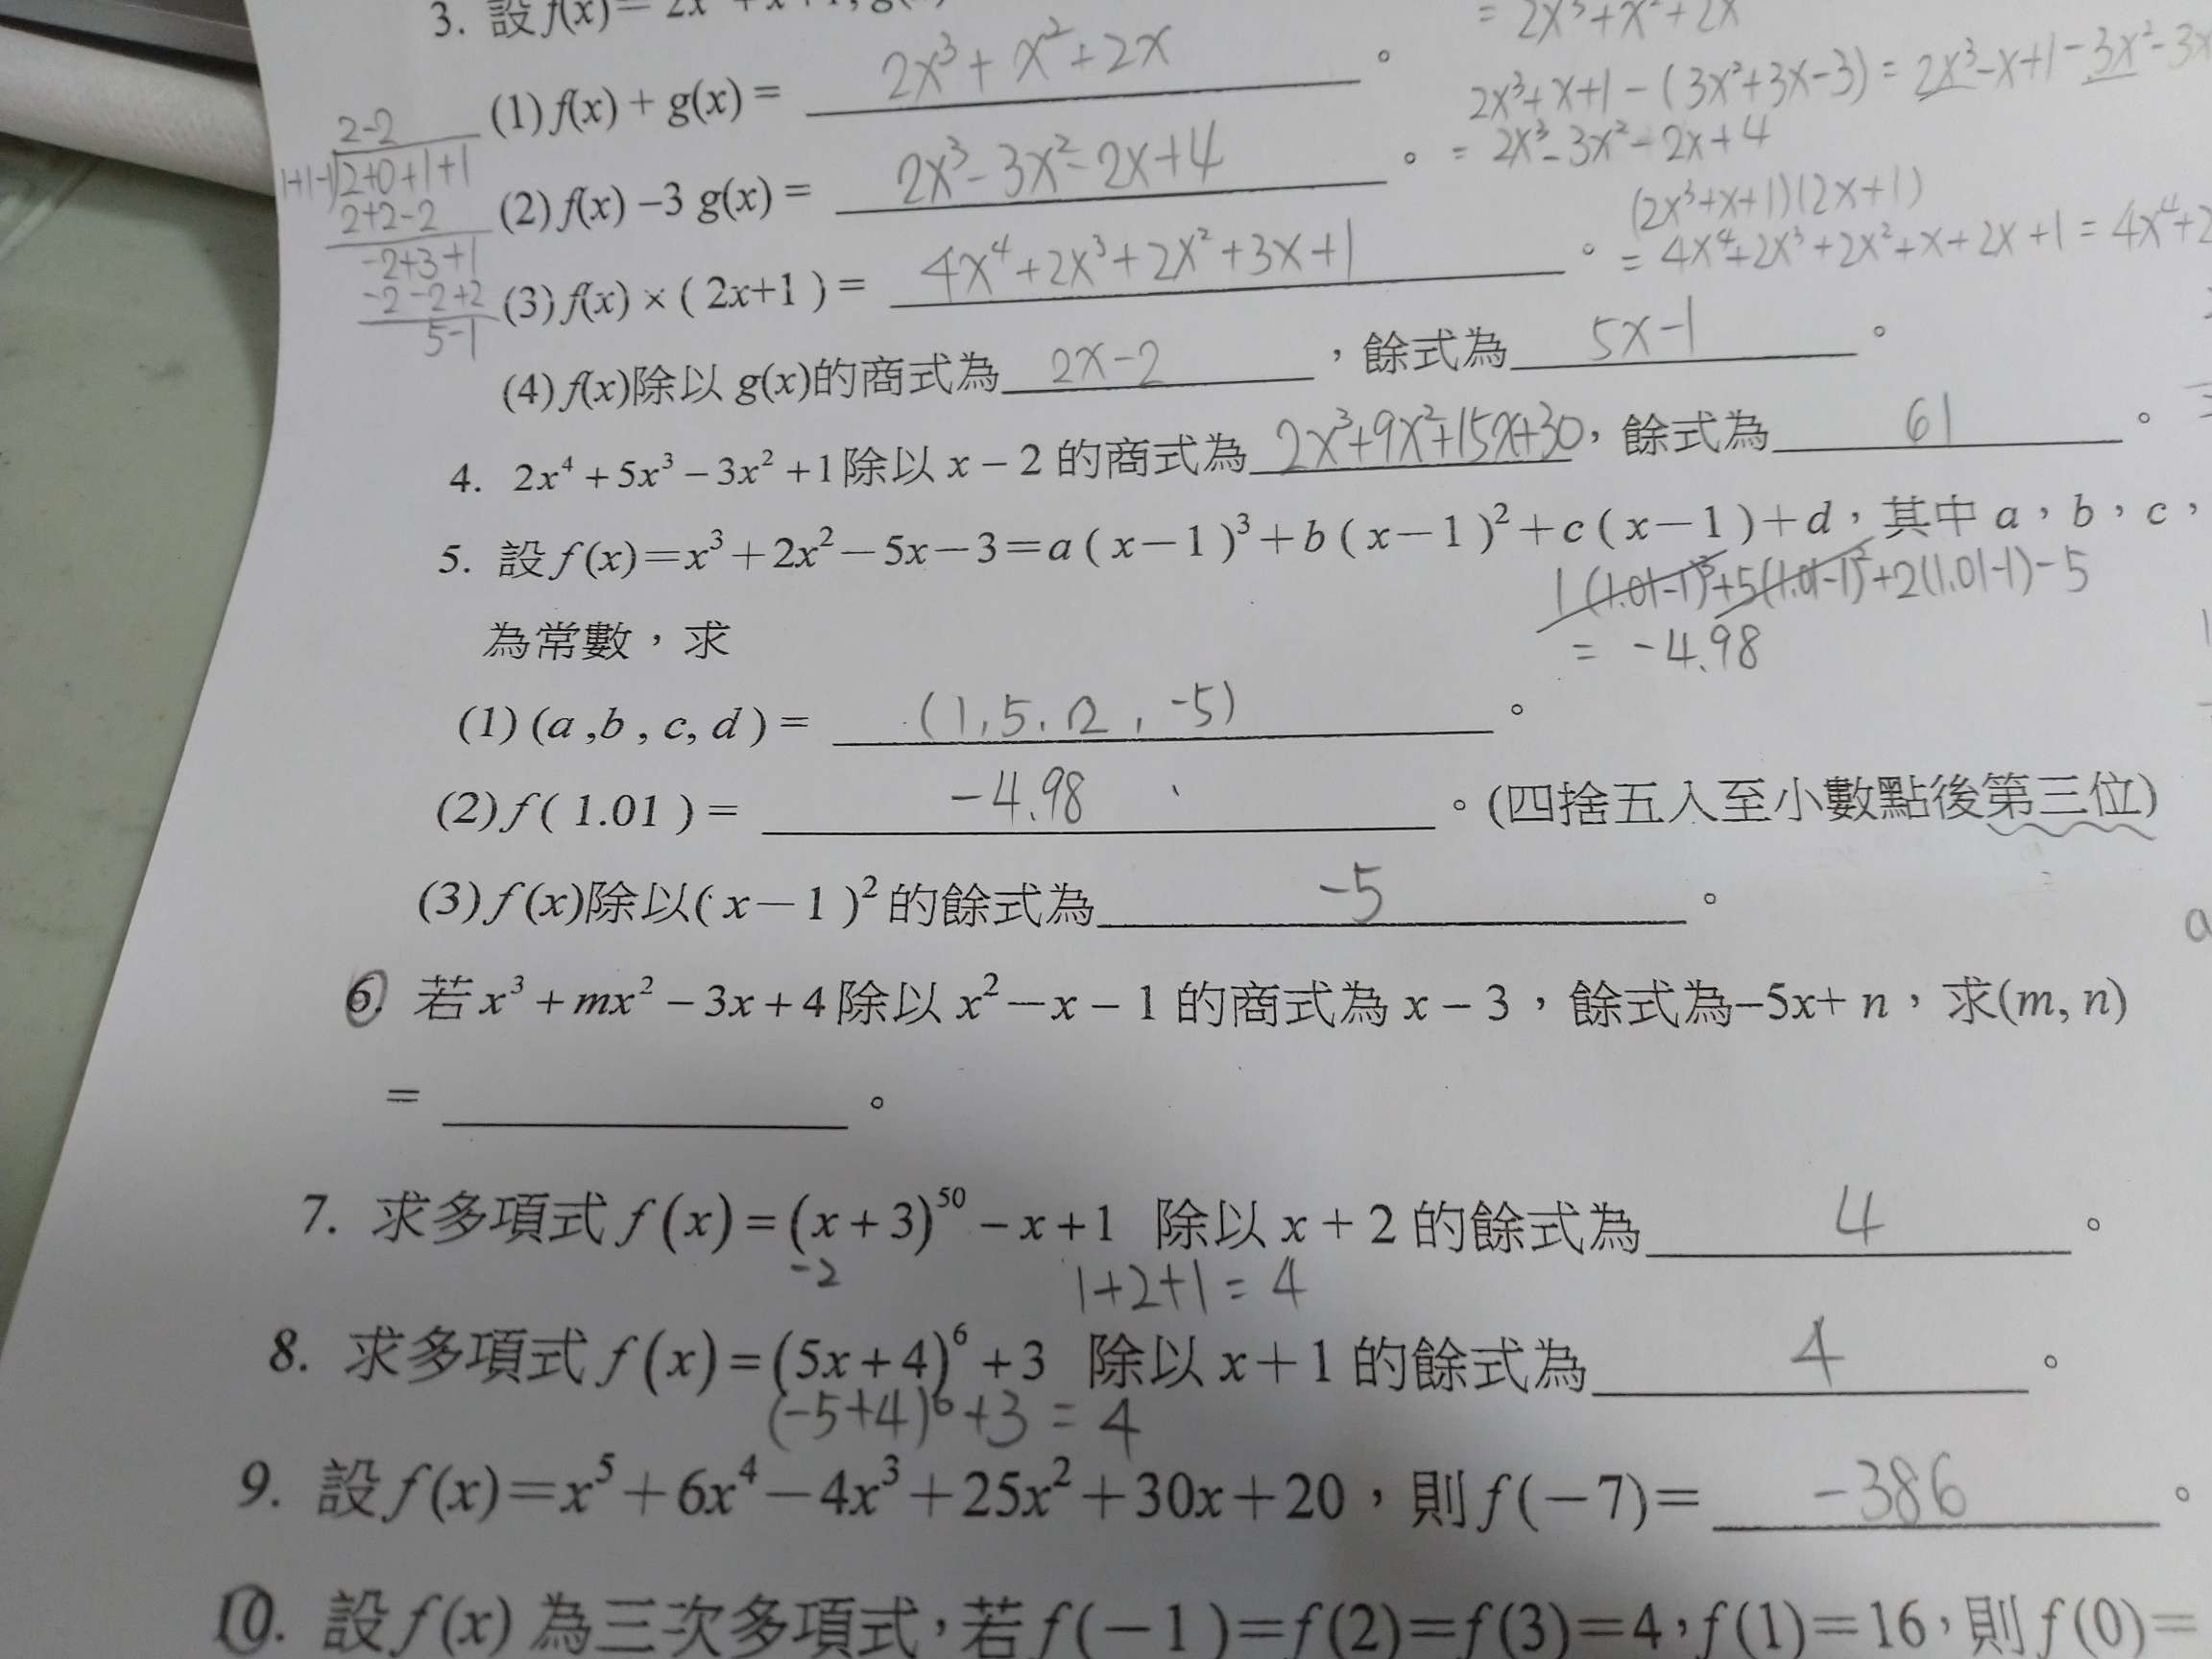 3. 設 f(x)= 2x
= 2x³+x²+2x
(1) f(x) + g(x) = 2x³+x²+2x 。
2x³+x+1-(3x²+3x-3) = 2x³-x+1-3x²-3x
= 2x³-3x²-2x+4
2-2
1+1-1 2+0+1+1
2+2-2
-2+3+1
-2-2+2
5-1
(2) f(x) –3 g(x) = 2x³-3x²-2x+4 。
(2x³+x+1)(2x+1)
= 4x⁴+2x³+2x²+x+2x+1 = 4x⁴+2
(3) f(x) × ( 2x+1 ) = 4x⁴+2x³+2x²+3x+1 。
(4) f(x)除以 g(x)的商式為 2x-2 ,餘式為 5x-1 。
4. 2x⁴ + 5x³ − 3x² + 1除以 x − 2 的商式為 2x³+9x²+15x+30,餘式為 61 。
5. 設 f (x)=x³+2x²−5x−3=a ( x−1 )³+b ( x−1 )²+c ( x−1 )+d,其中 a,b,c,
1(1.01-1)³+5(1.01-1)²+2(1.01-1)-5
= -4.98
為常數,求
(1) (a ,b , c, d ) = (1,5,2,-5) 。
(2) f ( 1.01 ) = -4.98 。(四捨五入至小數點後第三位)
(3) f (x)除以( x−1 )² 的餘式為 -5 。
6. 若 x³ + mx² − 3x + 4 除以 x² − x − 1 的商式為 x − 3,餘式為–5x+ n,求(m, n)
= 。
7. 求多項式 f (x) = (x + 3)⁵⁰ − x + 1 除以 x + 2 的餘式為 4 。
-2
1+2+1 = 4
8. 求多項式 f (x) = (5x + 4)⁶ + 3 除以 x+1 的餘式為 4 。
(-5+4)⁶+3 = 4
9. 設 f (x)=x⁵+6x⁴−4x³+25x²+30x+20,則 f (−7)= -386 。
10. 設 f (x) 為三次多項式,若 f (−1 )=f (2)=f (3)=4,f (1)=16,則 f (0)=